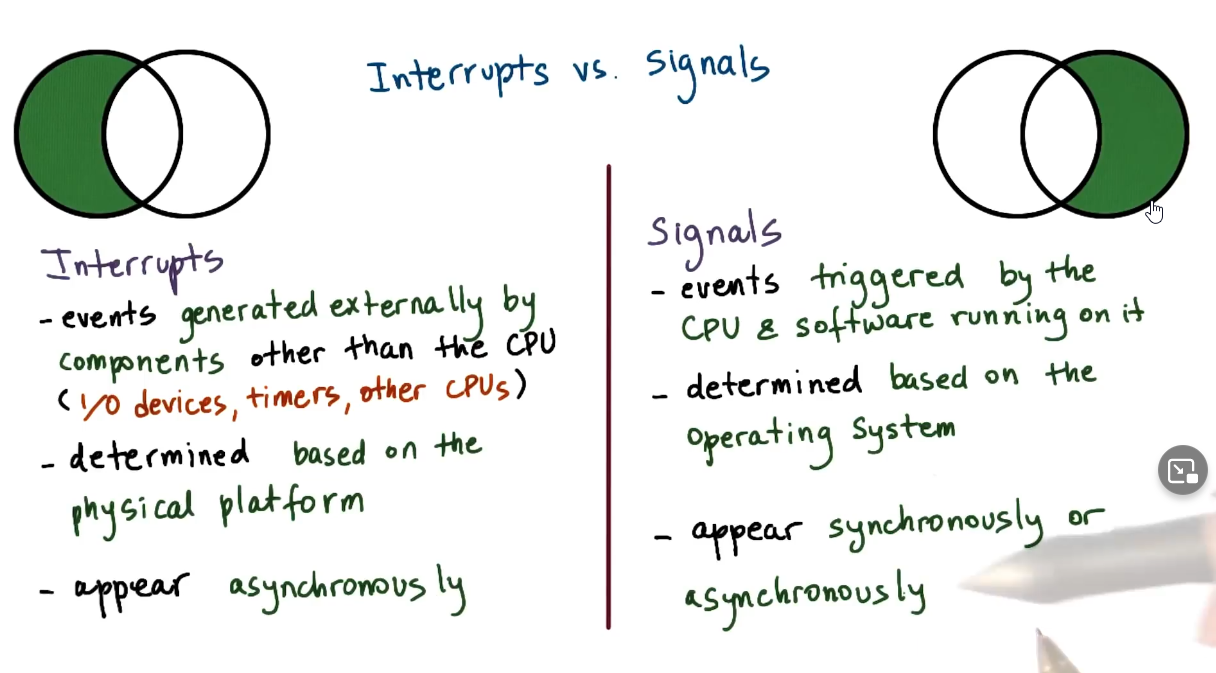 Interrupts vs. Signals
Interrupts
- events generated externally by
components other than the CPU
(I/O devices, timers, other CPUs)
- determined based on the
physical platform
- appear asynchronously
Signals
- events triggered by the
CPU & software running on it
- determined based on the
operating system
- appear synchronously or
asynchronously